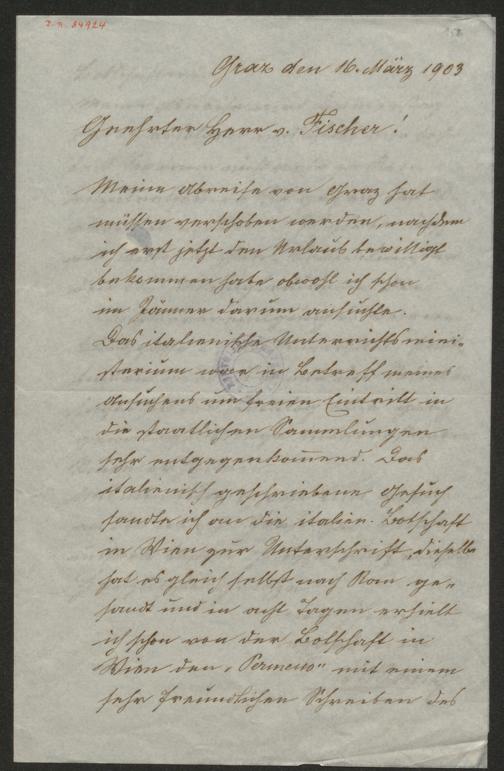 I. N. 84924
Graz den 16. März 1903
Geehrter Herr v. Fischer!
Meine Abreise von Graz hat
müssen verschoben werden, nachdem
ich erst jetzt den Urlaub bewilligt
bekommen habe obwohl ich schon
im Jänner darum ansuchte.
Das italienische Unterrichtsmini-
sterium war in Betreff meines
Ansuchens um freien Eintritt in
die staatlichen Sammlungen
sehr entgegenkommend. Das
italienisch geschriebene Gesuch
sandte ich an die italien. Botschaft
in Wien zur Unterschrift, dieselbe
hat es gleich selbst nach Rom ge-
sandt und in acht Tagen erhielt
ich schon von der Botschaft in
Wien den „Permesso" mit einem
sehr freundlichen Schreiben des